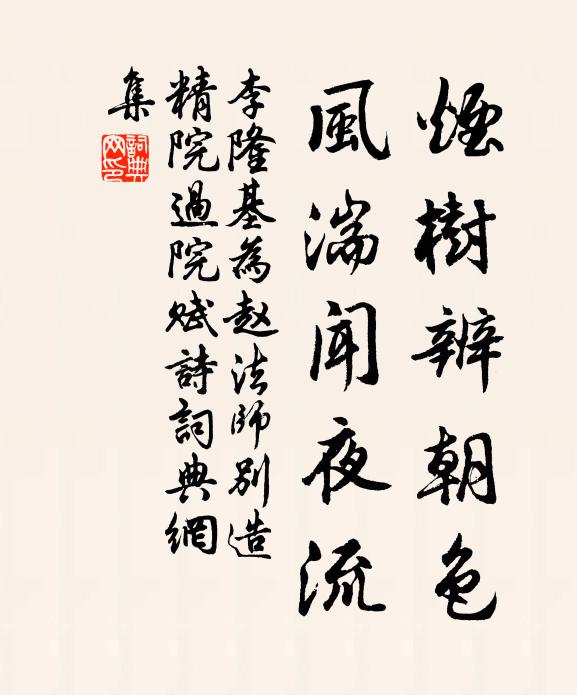 煙樹辨朝色
風湍聞夜流
李隆基為赵法師別造
精院過院赋詩詞典網
集
詞典網印